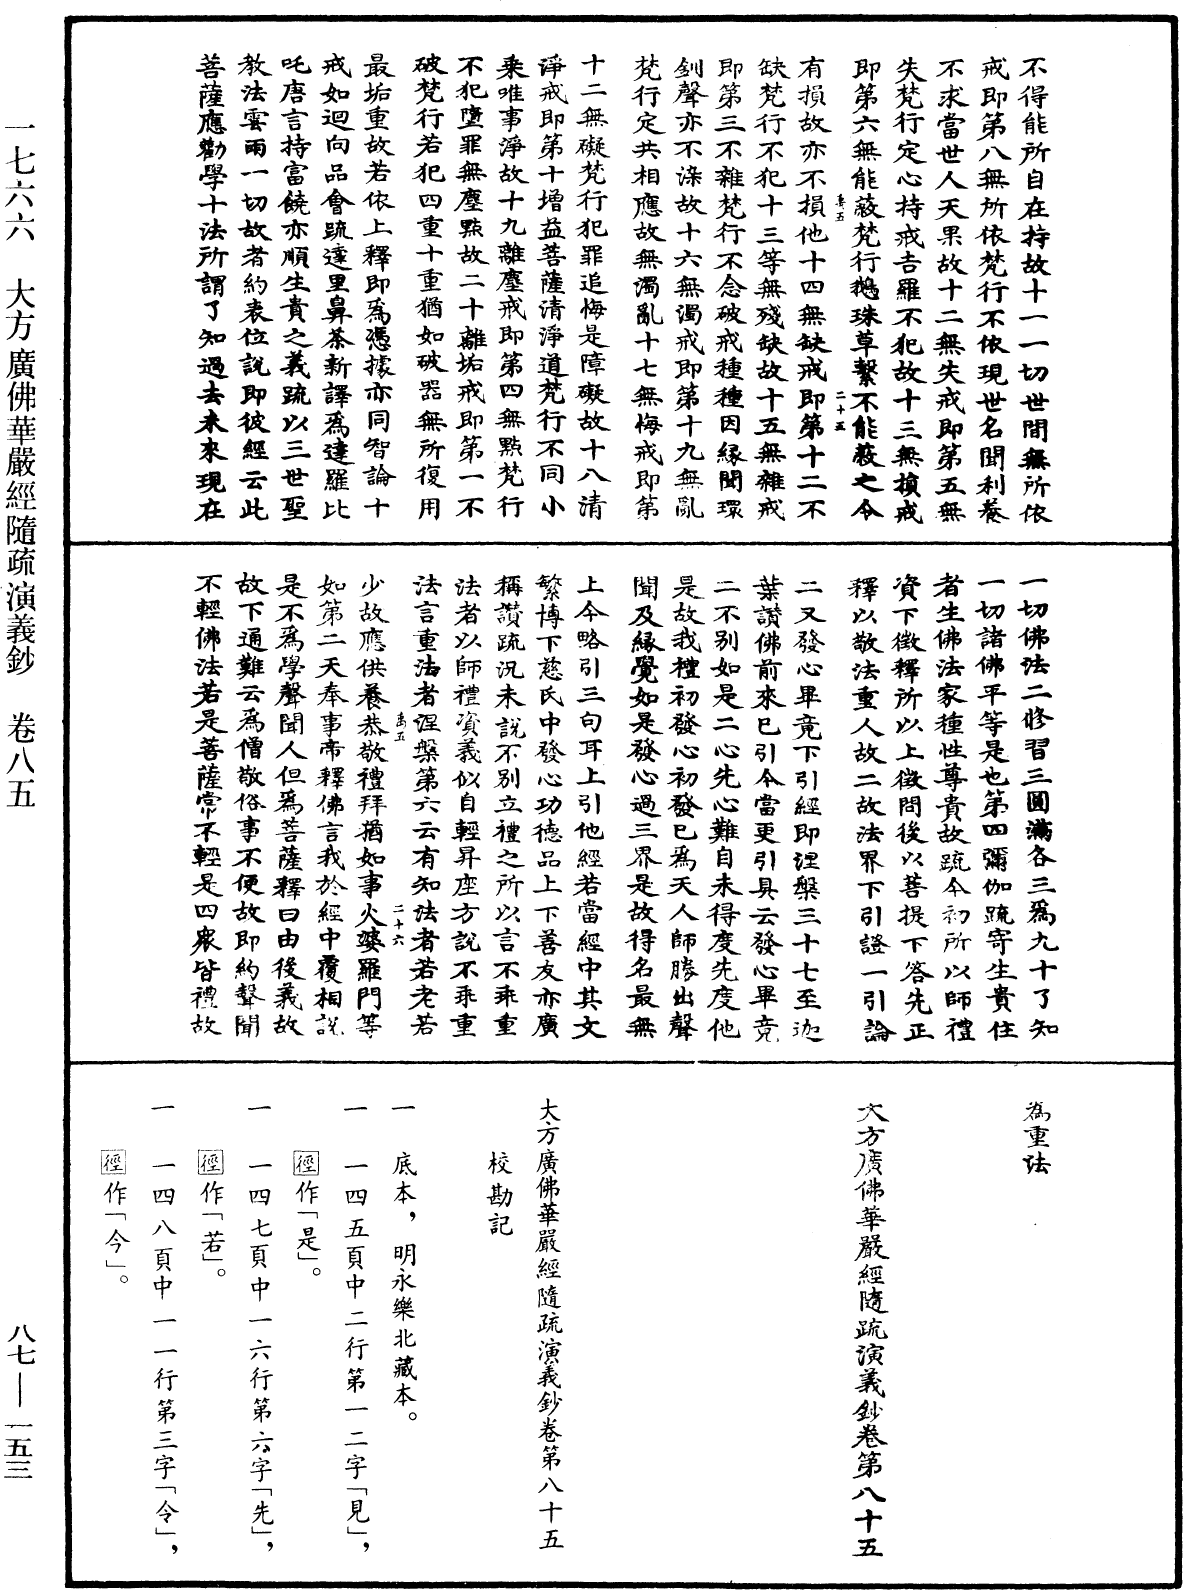 一七六六　大方廣佛華嚴經隨疏演義鈔　卷八五
不得能所自在持故十一一切世間無所依
戒即第八無所依梵行不依現世名聞利養
不求當世人天果故十二無失戒即第五無
失梵行定心持戒吉羅不犯故十三無損戒
即第六無能蔽梵行鵝珠草繫不能蔽之令
有損故亦不損他十四無缺戒即第十二不
缺梵行不犯十三等無殘缺故十五無雜戒
即第三不雜梵行不念破戒種種因緣聞環
釧聲亦不染故十六無濁戒即第十九無亂
梵行定共相應故無濁亂十七無悔戒即第
十二無礙梵行犯罪追悔是障礙故十八清
淨戒即第十增益菩薩清淨道梵行不同小
乘唯事淨故十九離塵戒即第四無點梵行
不犯墮罪無塵點故二十離垢戒即第一不
破梵行若犯四重十重猶如破器無所復用
最垢重故若依上釋即爲憑據亦同智論十
戒如迴向品會疏達里鼻荼新譯爲達羅比
吒唐言持富饒亦順生貴之義疏以三世聖
教法雲雨一切故者約表位說即彼經云此
菩薩應勸學十法所謂了知過去未來現在
一切佛法二修習三圓滿各三爲九十了知
一切諸佛平等是也第四彌伽疏寄生貴住
者生佛法家種性尊貴故疏今初所以師禮
資下徵釋所以上徵問後以菩提下答先正
釋以敬法重人故二故法界下引證一引論
二又發心畢竟下引經即涅槃三十七至迦
葉讚佛前來已引今當更引具云發心畢竟
二不別如是二心先心難自未得度先度他
是故我禮初發心初發已爲天人師勝出聲
聞及緣覺如是發心過三界是故得名最無
上今略引三句耳上引他經若當經中其文
繁博下慈氏中發心功德品上下善友亦廣
稱讚疏況未說不別立禮之所以言不乖重
法者以師禮資義似自輕昇座方說不乖重
法言重法者涅槃第六云有知法者若老若
少故應供養恭敬禮拜猶如事火婆羅門等
如第二天奉事帝釋佛言我於經中覆相說
是不爲學聲聞人但爲菩薩釋曰由後義故
故下通難云爲僧敬俗事不便故即約聲聞
不輕佛法若是菩薩常不輕是四衆皆禮故
爲重法
大方廣佛華嚴經隨疏演義鈔卷第八十五
大方廣佛華嚴經隨疏演義鈔卷第八十五
校勘記
一　底本，明永樂北藏本。
一　一四五頁中二行第一二字「見」，
徑作「是」。
一　一四七頁中一六行第六字「先」，
徑作「若」。
一　一四八頁中一一行第三字「令」，
徑作「今」。
二十五
二十六
八七—一五三